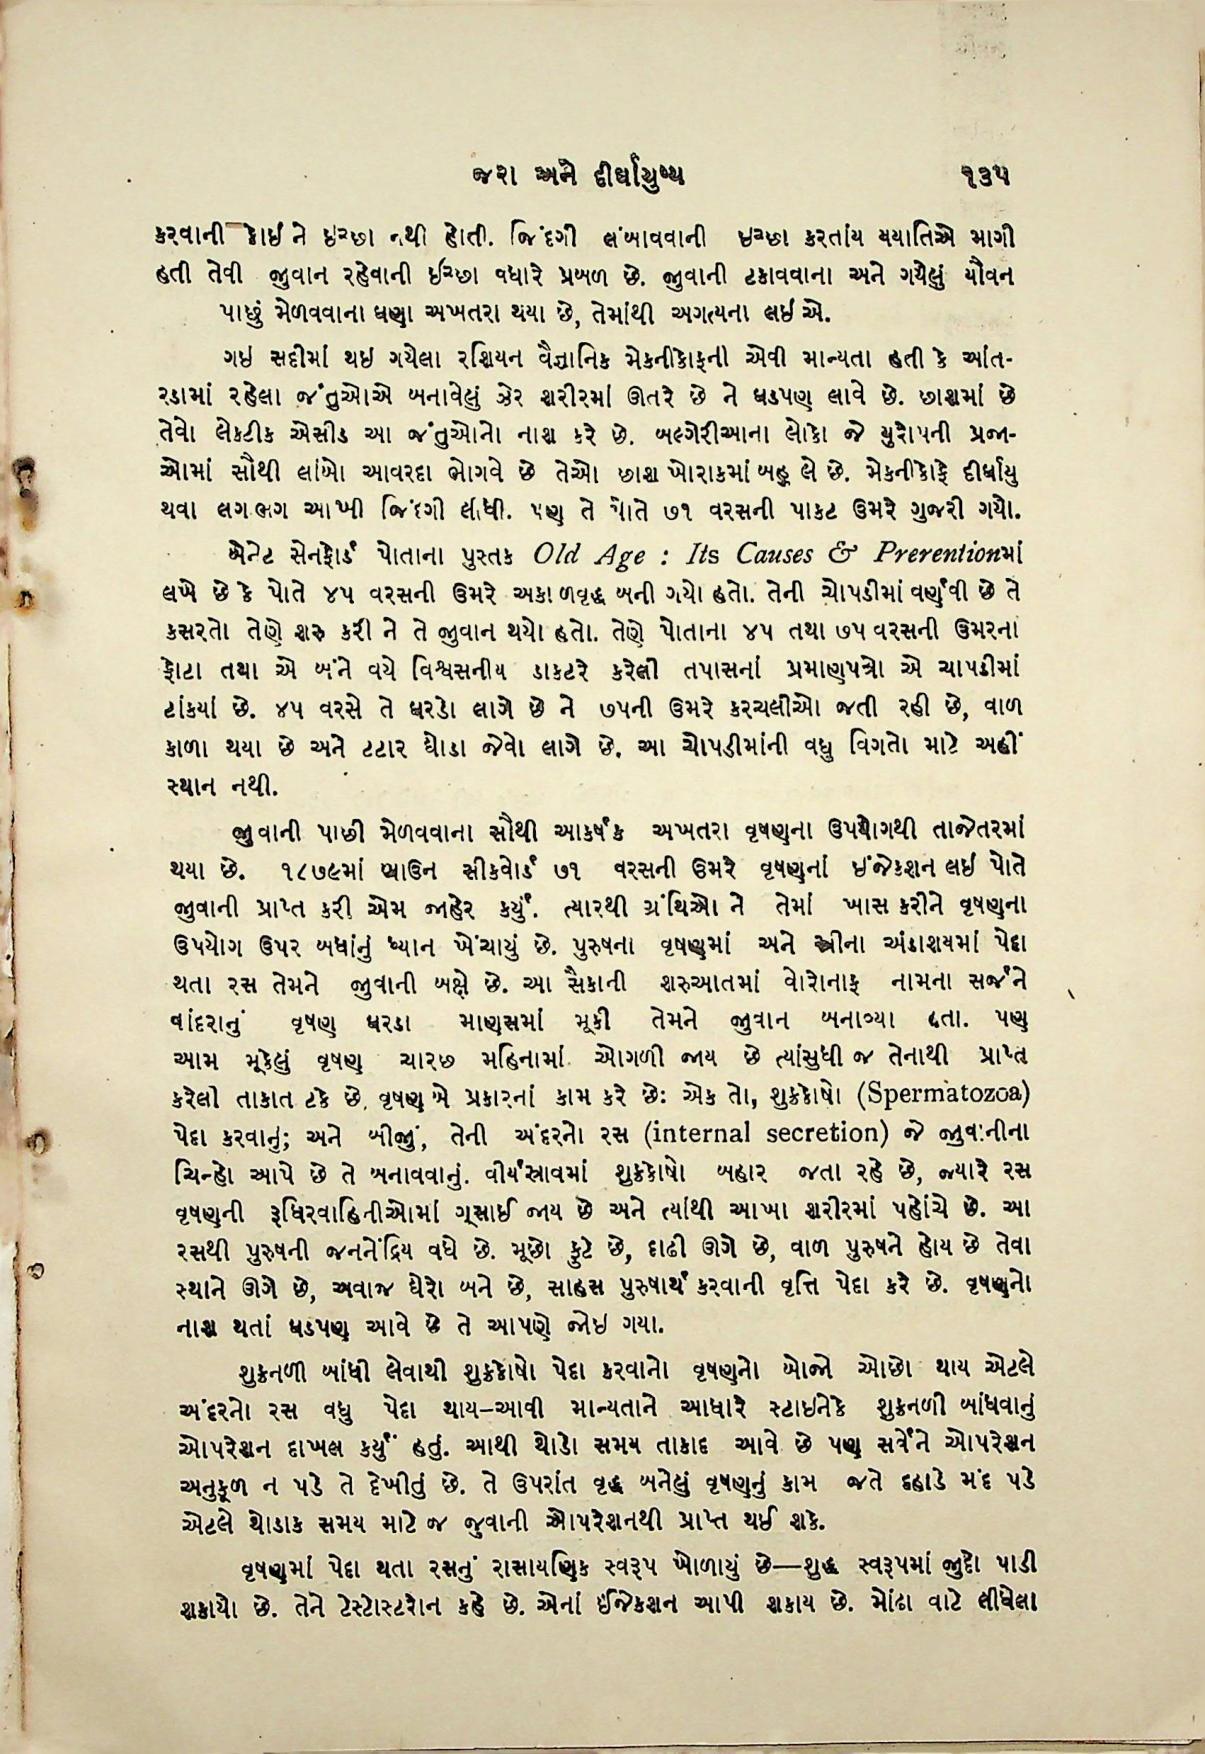 જરા અને દીર્ઘાયુષ્ય ૧૩૫
કરવાની કોઈ ને ઇચ્છા નથી હોતી. જિંદગી લંબાવવાની ઇચ્છા કરતાંય યયાતિએ માગી
હતી તેવી જુવાન રહેવાની ઈચ્છા વધારે પ્રબળ છે. જુવાની ટકાવવાના અને ગયેલું યૌવન
પાછું મેળવવાના ઘણા અખતરા થયા છે, તેમાંથી અગત્યના લઇ એ.
ગઇ સદીમાં થઇ ગયેલા રશિયન વૈજ્ઞાનિક મેકનીકોફની એવી માન્યતા હતી કે આંત-
રડામાં રહેલા જંતુઓએ બનાવેલું ઝેર શરીરમાં ઊતરે છે ને ઘડપણ લાવે છે. છાશમાં છે
તેવો લેકટીક એસીડ આ જંતુઓનો નાશ કરે છે. બલ્ગેરીઆના લોકો જે યુરોપની પ્રજા-
ઓમાં સૌથી લાંબો આવરદા ભોગવે છે તેઓ છાશ ખોરાકમાં બહુ લે છે. મેકનીકોફે દીર્ઘાયુ
થવા લગભગ આખી જિંદગી લીધી. પણ તે પોતે ૭૧ વરસની પાકટ ઉમરે ગુજરી ગયો.
બેનેટ સેનફોર્ડ પોતાના પુસ્તક Old Age : Its Causes & Prerentionમાં
લખે છે કે પોતે ૪૫ વરસની ઉમરે અકાળવૃદ્ધ બની ગયો હતો. તેની ચોપડીમાં વર્ણવી છે તે
કસરતો તેણે શરુ કરી ને તે જુવાન થયો હતો. તેણે પોતાના ૪૫ તથા ૭૫ વરસની ઉમરના
ફોટા તથા એ બંને વયે વિશ્વસનીય ડાકટરે કરેલી તપાસનાં પ્રમાણપત્રો એ ચાપડીમાં
ટાંકયાં છે. ૪૫ વરસે તે ઘરડો લાગે છે ને ૭૫ની ઉમરે કરચલીઓ જતી રહી છે, વાળ
કાળા થયા છે અને ટટાર ઘોડા જેવો લાગે છે. આ ચોપડીમાંની વધુ વિગતો માટે અહીં
સ્થાન નથી.
જુવાની પાછી મેળવવાના સૌથી આકર્ષક અખતરા વૃષણના ઉપયોગથી તાજેતરમાં
થયા છે. ૧૮૭૯માં બ્રાઉન સીકવોર્ડ ૭૧ વરસની ઉમરે વૃષણનાં ઇંજેકશન લઇ પોતે
જુવાની પ્રાપ્ત કરી એમ જાહેર કર્યું. ત્યારથી ગ્રંથિઓ ને તેમાં ખાસ કરીને વૃષણના
ઉપયોગ ઉપર બધાંનું ધ્યાન ખેંચાયું છે. પુરુષના વૃષણમાં અને સ્ત્રીના અંડાશયમાં પેદા
થતા રસ તેમને જુવાની બક્ષે છે. આ સૈકાની શરુઆતમાં વોરોનાફ નામના સર્જને
વાંદરાનું વૃષણ ઘરડા માણસમાં મૂકી તેમને જુવાન બનાવ્યા હતા. પણ
આમ મૂકેલું વૃષણ ચારછ મહિનામાં ઓગળી જાય છે ત્યાંસુધી જ તેનાથી પ્રાપ્ત
કરેલી તાકાત ટકે છે. વૃષણ બે પ્રકારનાં કામ કરે છેઃ એક તો, શુક્રકોષો (Spermatozoa)
પેદા કરવાનું; અને બીજું, તેની અંદરનો રસ (internal secretion) જે જુવાનીના
ચિન્હો આપે છે તે બનાવવાનું. વીર્યસ્રાવમાં શુક્રકોષો બહાર જતા રહે છે, જ્યારે રસ
વૃષણની રૂધિરવાહિનીઓમાં ચૂસાઈ જાય છે અને ત્યાંથી આખા શરીરમાં પહોંચે છે. આ
રસથી પુરુષની જનનેંદ્રિય વધે છે. મૂછો ફુટે છે, દાઢી ઊગે છે, વાળ પુરુષને હોય છે તેવા
સ્થાને ઊગે છે, અવાજ ઘેરો બને છે, સાહસ પુરુષાર્થ કરવાની વૃત્તિ પેદા કરે છે. વૃષણનો
નાશ થતાં ઘડપણ આવે છે તે આપણે જોઇ ગયા.
શુક્રનળી બાંધી લેવાથી શુક્રકોષો પેદા કરવાનો વૃષણનો બોજો ઓછો થાય એટલે
અંદરનો રસ વધુ પેદા થાય–આવી માન્યતાને આધારે સ્ટાઇનેકે શુક્રનળી બાંધવાનું
ઓપરેશન દાખલ કર્યું હતું. આથી થોડો સમય તાકાદ આવે છે પણ સર્વેને ઓપરેશન
અનુકૂળ ન પડે તે દેખીતું છે. તે ઉપરાંત વૃદ્ધ બનેલું વૃષણનું કામ જતે દહાડે મંદ પડે
એટલે થોડાક સમય માટે જ જુવાની ઓપરેશનથી પ્રાપ્ત થઈ શકે.
વૃષણમાં પેદા થતા રસનું રાસાયણિક સ્વરૂપ ખોળાયું છે—શુદ્ધ સ્વરૂપમાં જુદો પાડી
શકાયો છે. તેને ટેસ્ટોસ્ટરોન કહે છે. એનાં ઈંજેકશન આપી શકાય છે. મોંઢા વાટે લીધેલા